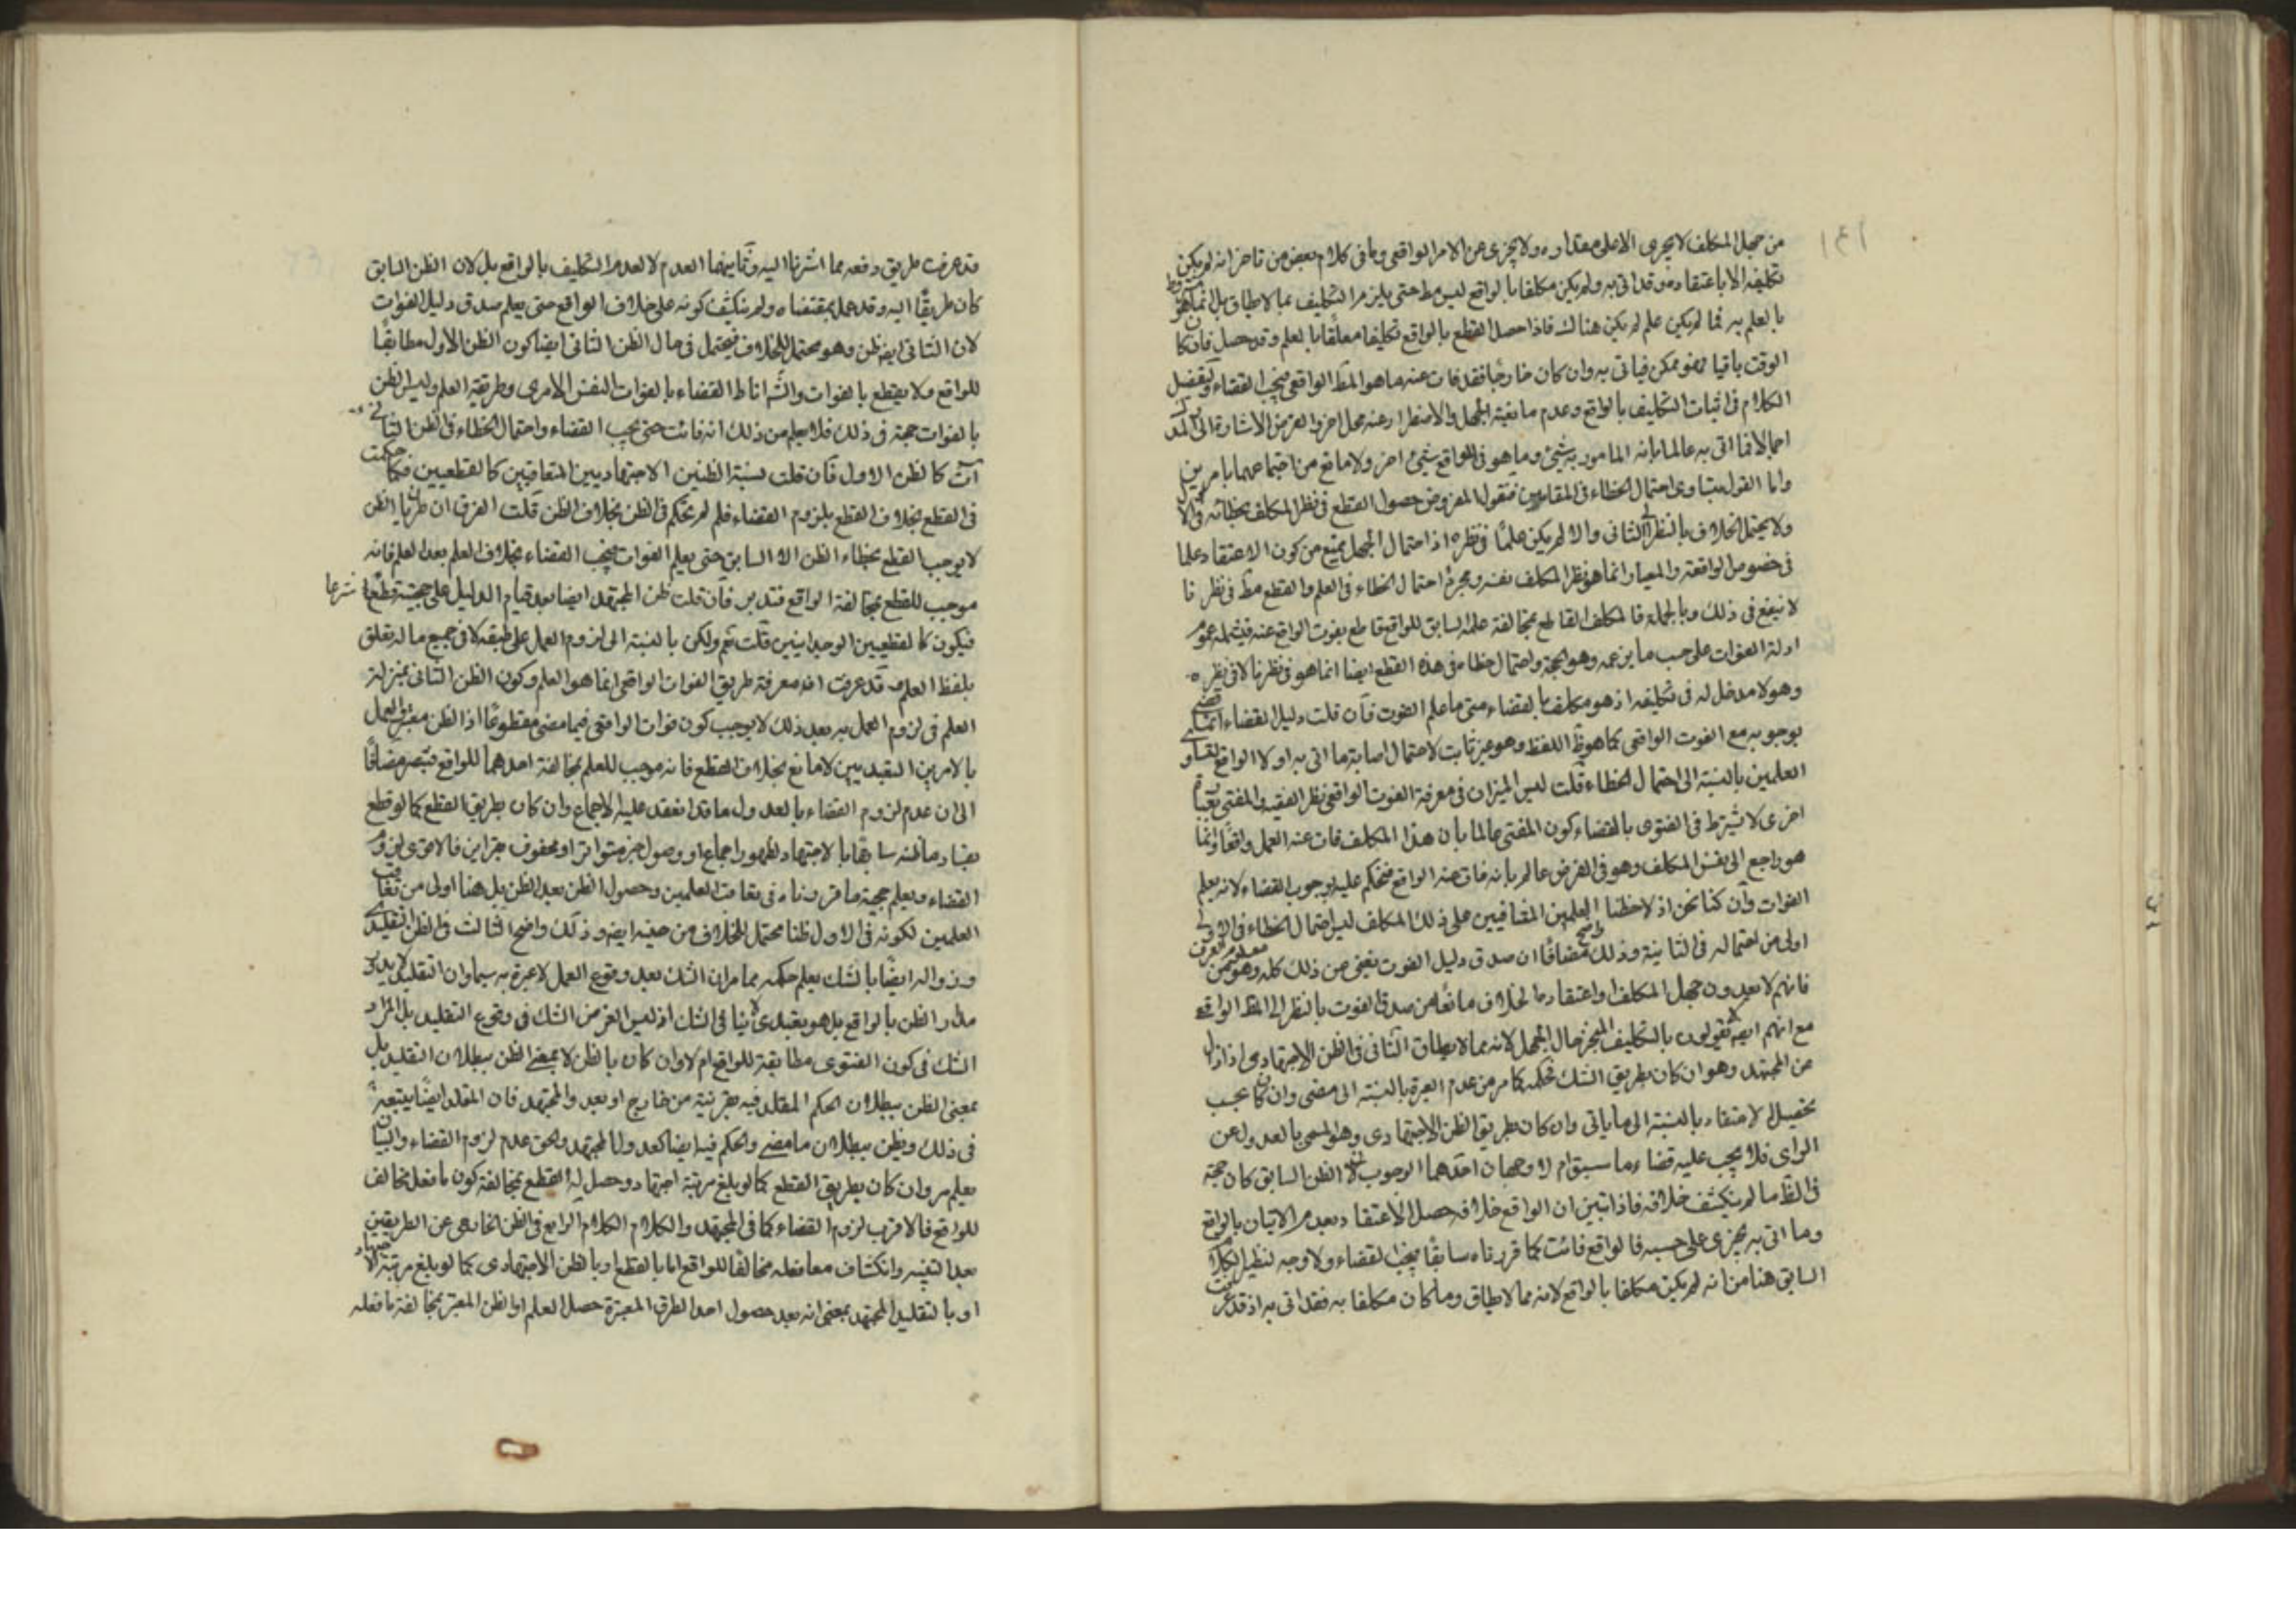 من جهل المكلف لا يجرى الا على مقداره ولا يجزى عن الامر الواقعى وما فى كلام بعض من تاخر انه لم يكن
تكليفه الا باعتقاده وقد اتى به ولم يكن مكلفا بالواقع ليس مط حتى يلزم التكليف بما لا يطاق بل انما هو
بالعلم به فما لم يكن علم لم يكن هناك فاذا حصل القطع بالواقع تكليفا معلقا بالعلم وقد حصل فان كا
الوقت باقيا فهو ممكن فياتى به وان كان خارجا فقد فات عنه ما هو المط الواقعى فيجب القضاء وتفصيل
الكلام فى اثبات التكليف بالواقع وعدم مانعية الجهل والاضطرار عنه محل اخر والغرض الاشارة الى
اجمالا فما اتى به عالما بانه المامور به شئ وما هو فى الواقع شئ اخر ولا مانع من اجتماعهما بامرين
واما القول بتساوى احتمال الخطاء فى المقامين فنقول المفروض حصول القطع فى نظر المكلف بخطائه
ولا يحتمل الخلاف بالنظر الى الثانى والا لم يكن علما فى نظره اذ احتمال الجهل يمنع من كون الاعتقاد علما
فى خصوص الواقعة والمعيار انما هو نظر المكلف نفسه ومجرد احتمال الخطاء فى العلم والقطع مط فى نظرنا
لا ينفع فى ذلك وبالجملة فالمكلف القاطع بمخالفة علمه السابق للواقع قاطع بفوت الواقع عنه فيشمله عموم
ادلة الفوات على حسب ما يزعمه وهو الحجة واحتمال خطاء فى هذه القطع ايضا انما هو فى نظرنا لا فى نظره
وهو لا مدخل له فى تكليفه اذ هو مكلف بالقضاء متى ما علم الفوت فان قلت دليل القضاء انما
بوجوبه مع الفوت الواقعى كما هو ظ اللفظ وهو غير ثابت لاحتمال اصابة ما اتى به اولا الواقع لتساو
العلمين بالنسبة الى احتمال الخطاء قلت ليس الميزان فى معرفة الفوت الواقعى نظر الفقيه والمفتى
اخرى لا يشترط فى الفتوى بالقضاء كون المفتى عالما بان هذا المكلف فات عنه العمل واقعا وانما
هو راجع الى نفس المكلف وهو فى الفرض عالم بانه فات عنه الواقع فنحكم عليه بوجوب القضاء لانه يعلم
الفوات وان كنا نحن اذ لاحظنا العلمين المتنافيين على ذلك المكلف ليس احتمال الخطاء فى الاولى
اولى من احتماله فى الثانية وذلك واضح مضافا ان صدق دليل الفوت يغنى عن ذلك كله وهو معلوم من العرف
فانهم لا يعدون جهل المكلف واعتقاده الخلاف مانعا من صدق الفوت بالنظر الى المط الواقعى
مع انهم ايض لا يقولون بالتكليف المنجز حال الجهل لانه مما لا يطاق الثانى فى الظن الاجتهادى اذا زال
من المجتهد وهو ان كان بطريق الشك فحكمه كما مر من عدم العبرة بالنسبة الى مضى وان كان يجب
تحصيل الاعتقاد بالنسبة الى ما ياتى وان كان بطريق الظن الاجتهادى وهو المسمى بالعدول عن
الراى فلا يجب عليه قضاء ما سبق ام لا وجهان احدهما الوجوب لان الظن السابق كان حجة
فى الظ ما لم ينكشف خلافه فاذا تبين ان الواقع خلافه حصل الاعتقاد بعدم الاتيان بالواقع
وما اتى به يجزى على حسبه فالواقع فائت كما قررناه سابقا فيجب القضاء ولا وجه لنظير الكلام
السابق هنا من انه لم يكن مكلفا بالواقع لانه مما لا يطاق وما كان مكلفا به فقد اتى به اذ قد عرفت
قد عرفت طريق دفعه مما اشرنا اليه وثانيهما العدم لا لعدم التكليف بالواقع بل لان الظن السابق
كان طريقا اليه وقد عمل بمقتضاه ولم ينكشف كونه على خلاف الواقع حتى يعلم صدق دليل الفوات
لان الثانى ايض ظن وهو محتمل للخلاف فيحتمل فى حال الظن الثانى ايضا كون الظن الاول مطابقا
للواقع ولا يقطع بالفوات والش اناط القضاء بالفوات النفس الامرى وطريقه العلم وليس الظن
بالفوات حجة فى ذلك فلا يعلم من ذلك انه فائت حتى يجب القضاء واحتمال الخطاء فى الظن الثانى
ات كالظن الاول فان قلت نسبة الظنين الاجتهاديين المتعاقبين كالقطعيين فكما حكمت
فى القطع بخلاف القطع بلزوم القضاء فلم لم تحكم فى الظن بخلاف الظن قلت الفرق ان طريان الظن
لا يوجب القطع بخطاء الظن الا السابق حتى يعلم الفوات فيجب القضاء بخلاف العلم بعد العلم فانه
موجب للقطع بمخالفة الواقع فتدبر فان قلت ظن المجتهد ايضا بعد قيام الدليل على حجيته قطع شرعا
فيكون كالقطعيين الوجدانيين قلت نعم ولكن بالنسبة الى لزوم العمل على طبقه لا فى جميع ما له تعلق
بلفظ العلم وقد عرفت انه معرفة طريق الفوات الواقعى انما هو العلم وكون الظن الثانى بمنزلة
العلم فى لزوم العمل به بعد ذلك لا يوجب كون فوات الواقعى فيما مضى مقطوعا اذ الظن معه العمل
بالامرين التعبديين لا مانع بخلاف القطع فانه موجب للعلم بمخالفة احدهما للواقع فتبصر مضافا
الى ان عدم لزوم القضاء بالعدول ما قد انعقد عليه الاجماع وان كان بطريق القطع كما لو قطع
بفساد ما ظنه سابقا بالاجتهاد لظهور اجماع او وصول خبر متواتر او محفوف بقراين فالاقوى لزوم
القضاء ويعلم حجية ما قررناه فى تعاقب العلمين وحصول الظن بعد الظن بل هنا اولى من تعاقب
العلمين لكونه فى الاول ظنا محتمل للخلاف من حينه ايض وذلك واضح الثالث فى الظن التقليدى
وزواله ايضا بالشك يعلم حكمه مما مر ان الشك بعد وقوع العمل لا عبرة به سيما وان التقليد لا يدور
مدار الظن بالواقع بل هو تعبدى لا ينافى الشك اذ ليس الغرض الشك فى وقوع التقليد بل المراد
الشك فى كون الفتوى مطابقة للواقع ام لا وان كان بالظن لا بمعنى الظن ببطلان التقليد بل
بمعنى الظن ببطلان الحكم المقلد فيه بقرينة من خارج او بعدول المجتهد فان المقلد ايضا يتبعه
فى ذلك ويظن ببطلان ما مضى والحكم فيه ايضا كعدول المجتهد والحق عدم لزوم القضاء والبيان
يعلم مر وان كان بطريق القطع كما لو بلغ مرتبة اجتهاد وحصل له القطع بمخالفة كون ما فعل مخالف
للواقع فالاقرب لزوم القضاء كما فى المجتهد والكلام الكلام الرابع فى الظن الخارجى عن الطريقين
بعد التغيير وانكشاف معا فعله مخالفا للواقع اما بالقطع او بالظن الاجتهادى كما لو بلغ مرتبة الاجتهاد
او بالتقليد المجتهد بمعنى انه بعد حصول احد الطرق المعتبرة حصل العلم او الظن المعتبر بمخالفة ما فعله